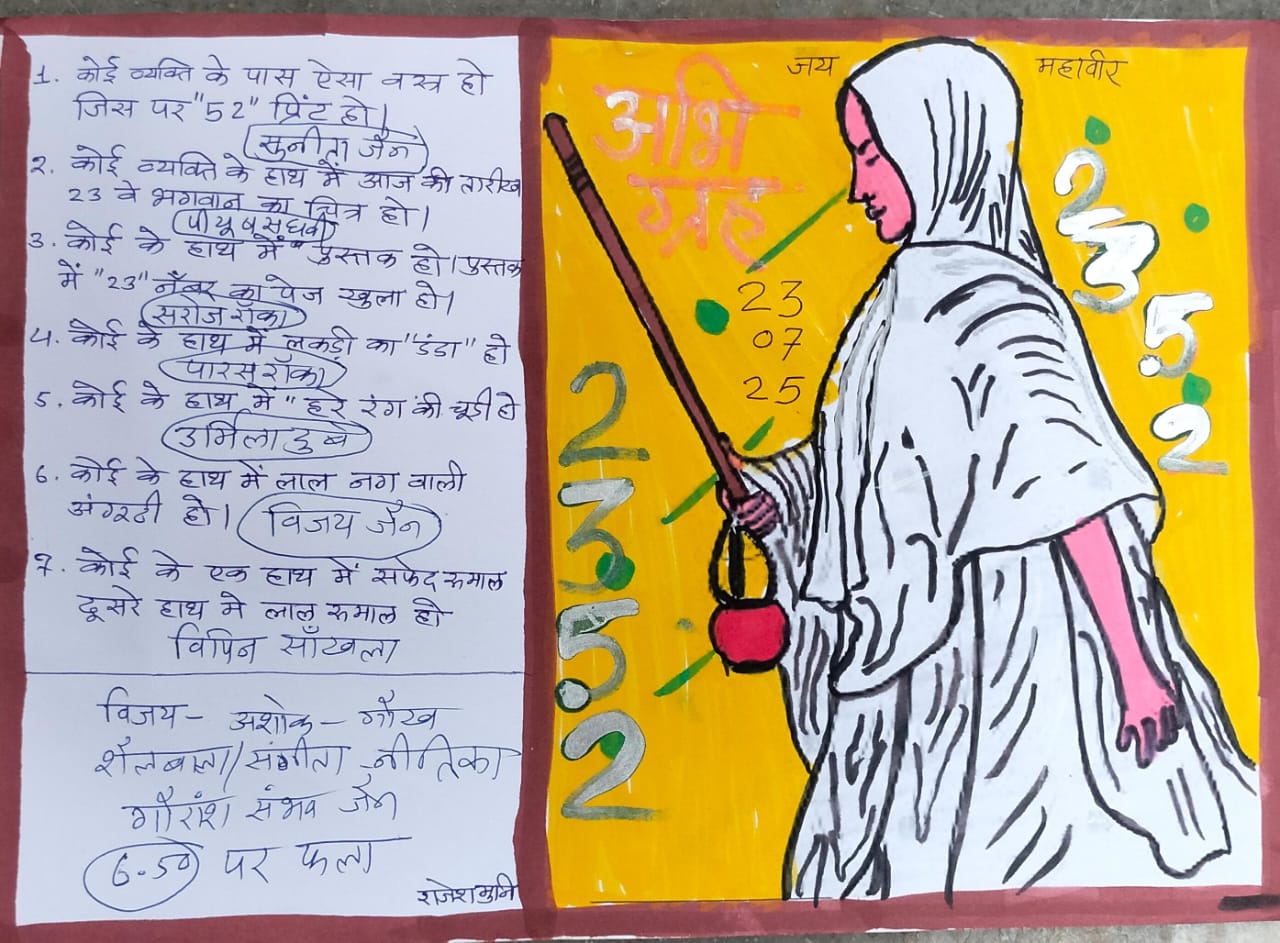 1. कोई व्यक्ति के पास ऐसा वस्त्र हो
जिस पर "52" प्रिंट हो।
सुनीता जैन
2. कोई व्यक्ति के हाथ में आज की तारीख
23 वे भगवान का चित्र हो।
पीयूष संघवी
3. कोई के हाथ में "पुस्तक हो। पुस्तक
में "23" नँबर का पेज खुला हो।
सरोज राँका
4. कोई के हाथ में लकडी का "डंडा" हो
पारस राँका
5. कोई के हाथ में "हरे रंग की चूडी हो
उर्मिला दुबे
6. कोई के हाथ में लाल नग वाली
अंगूठी हो। विजय जैन
7. कोई के एक हाथ में सफेद रुमाल
दूसरे हाथ मे लाल रुमाल हो
विपिन साँखला
विजय - अशोक - गौरव
शैलबाला/संगीता - नीतिका
गौरांश संभव जैन
6.50 पर फला
राजेशमुनि
जय महावीर
अभि
ग्रह
23
07
25
2
3
5
2
2
3
5
2